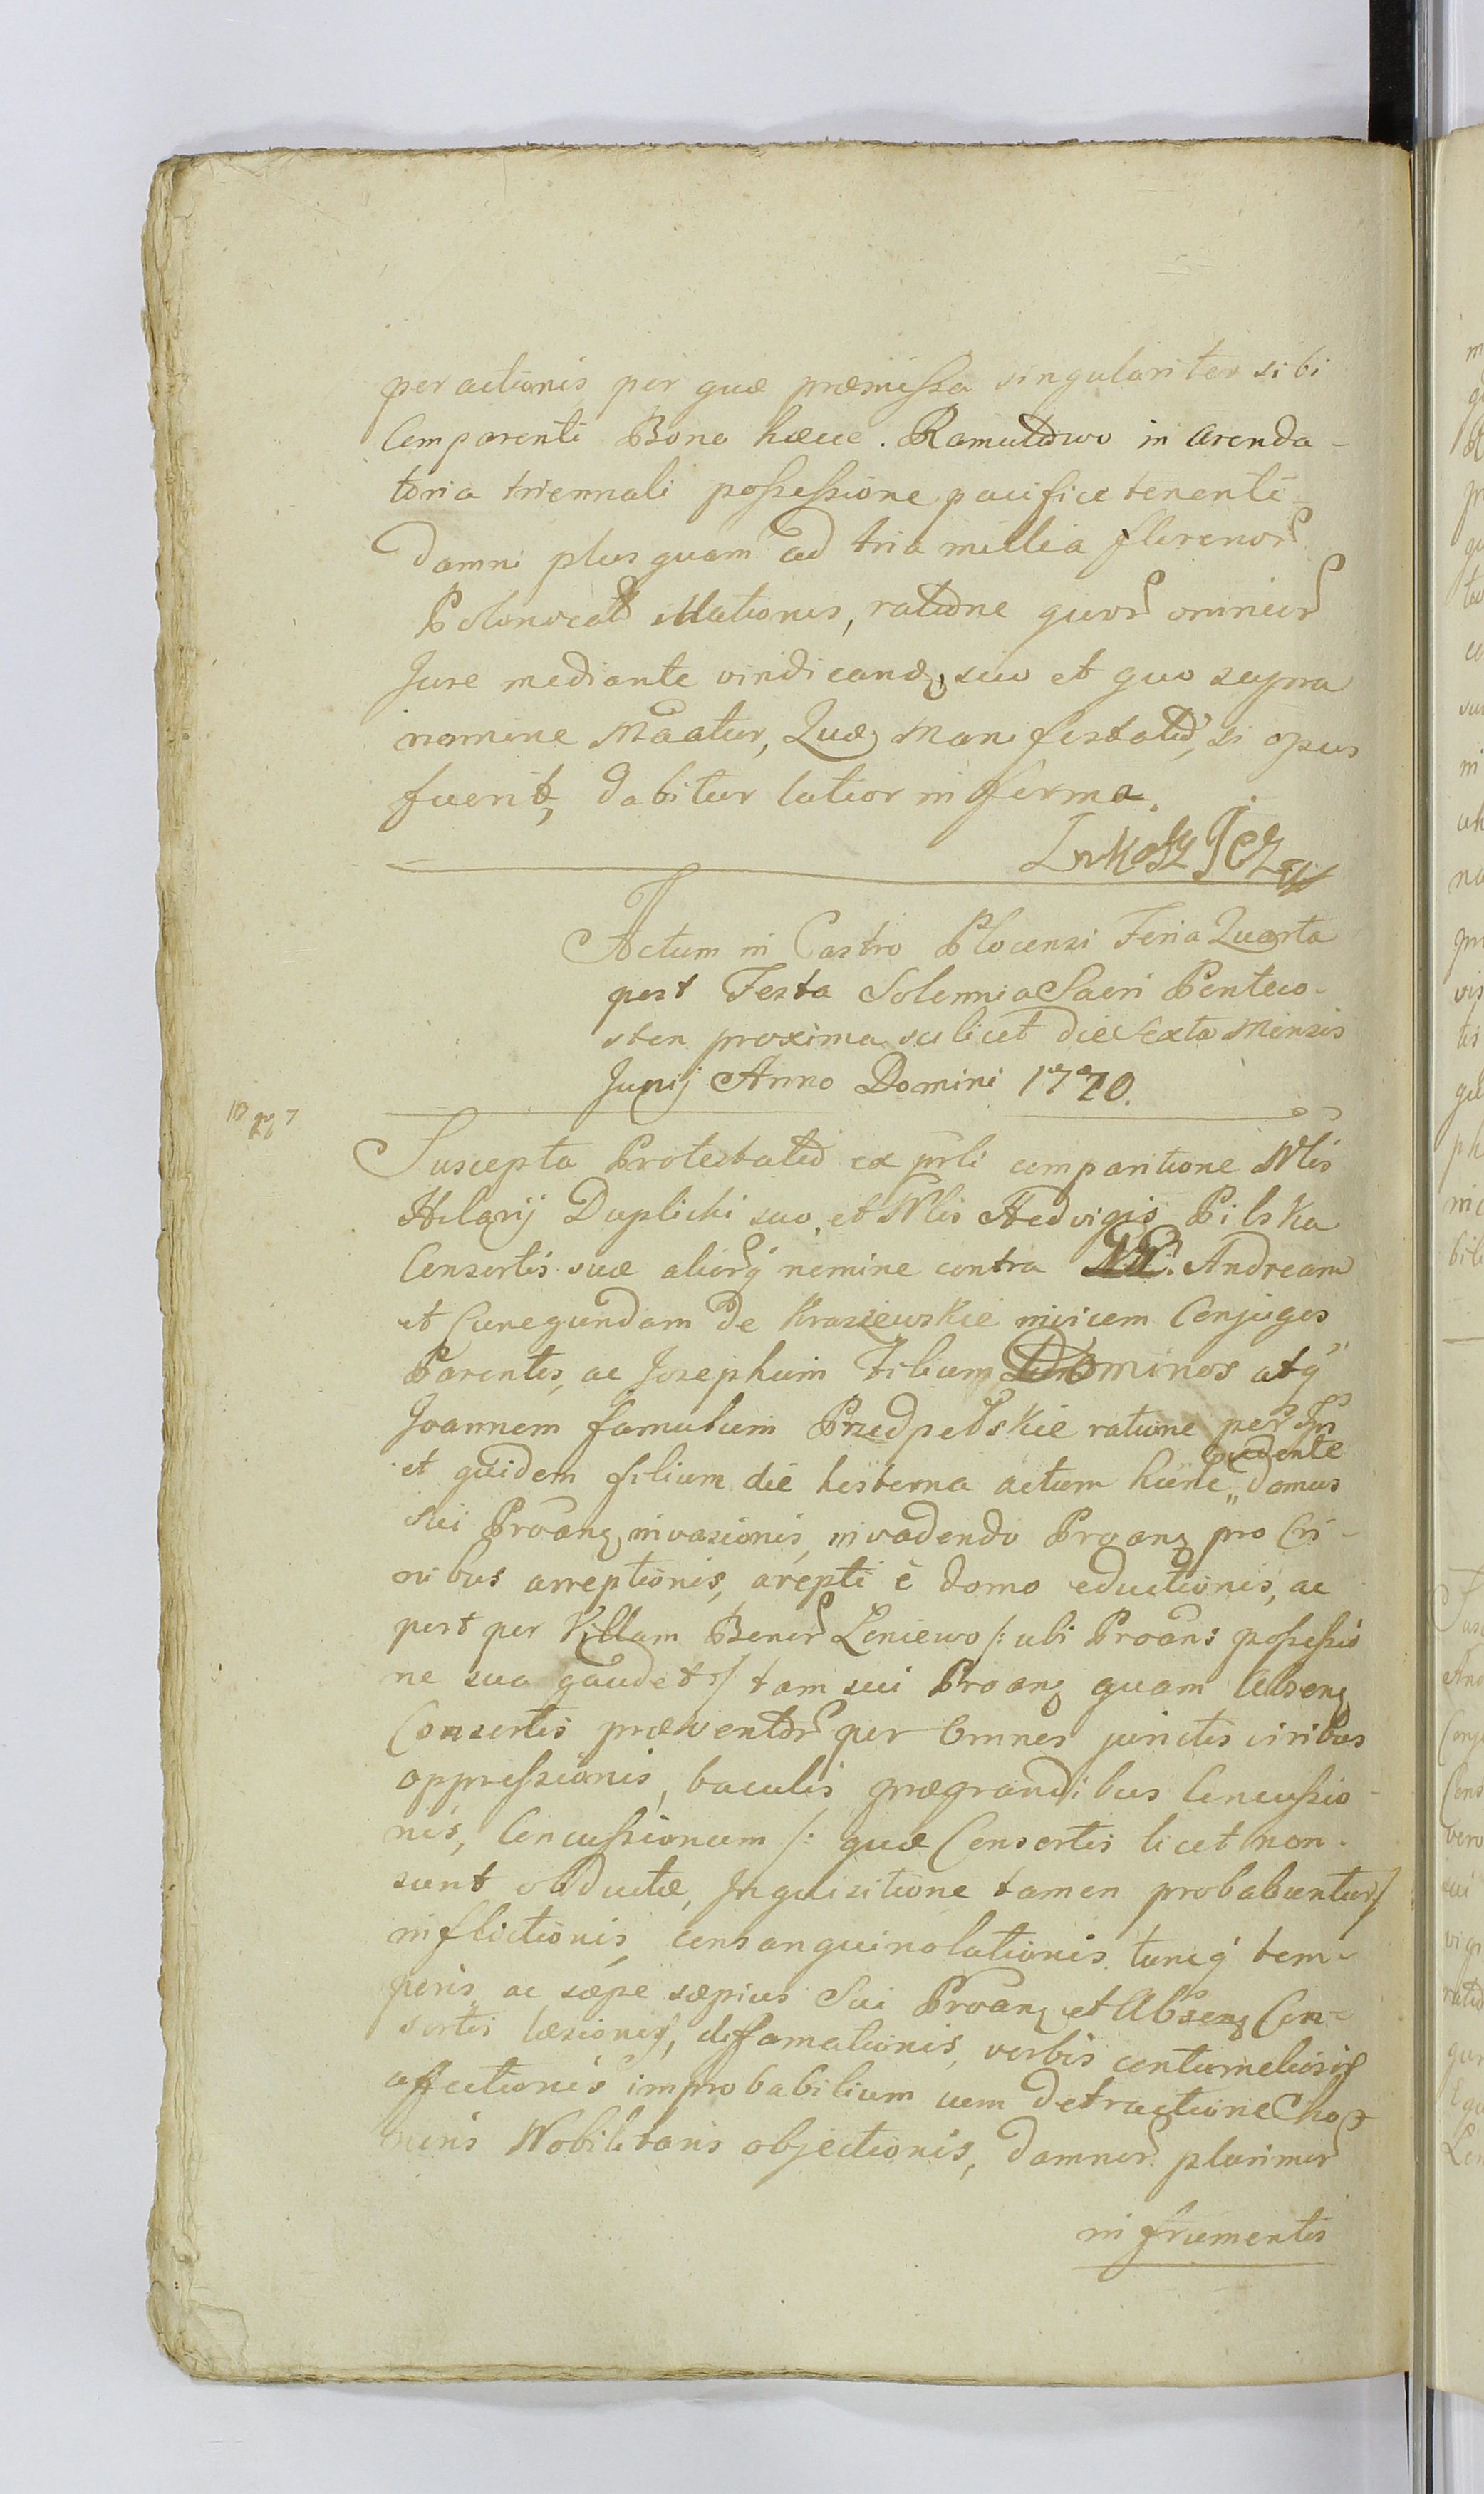 peractionis per quæ præmissa singulariter sibi
Comparenti Bona hæcce Ramutowo in arenda-
toria triennali possessione pacifice tenenti
damni plusquam ad tria millia florenor
Polonical illationis, ratione quor omnior
Jure mediante vindicand, suo et quo supra
nomine Maatur, Quæ Manifestatio, si opus
fuerit, dabitur latior in forma.
Łukasz Jeż
Actum in Castro Plocensi Feria Quarta
post Festa Solennia Sacri Penteco-
sten proxima scilicet die Sexta Mensis
Junij Anno Domini 1770.
Suscepta Protestatio ex prli comparitione Nlis
Hilarij Duplicki suo, et Nlis Hedvigis Pilska
Consortis suæ aliorq nomine contra Andream
et Cunegundam de Kraszewskie invicem Conjuges
Parentes, ac Josephum Filium Dominos atq
Joannem famulum Przedpełskie ratione per
et quidem filium die hesterna actum hunc
udente
domus
sui Proanq invasionis, invadendo Proanq pro Cri-
nibus arreptionis, arepti è domo eductionis, ac
post per Villam Bonor Leniewo /: ubi Proans possessio
ne sua gaudet :/ tam sui Proanq quam Absenq
Consortis præventor per Omnes junctis viribus
oppressionis, baculis prægrandibus Concussio-
nis, Concussionum /: quæ Consortis licet non
sunt obductæ, Inquisitione tamen probabuntur :/
inflictionis consanguinolationis tuncq tem-
poris, ac sæpe sæpius Sui Proanq et Absenq Con-
sortis læsionis, diffamationis, verbis contumeliosis
affectionis improbabilium cum detractione Ho-
noris Nobilitaris objectionis, damnor plurimor
in frumentis